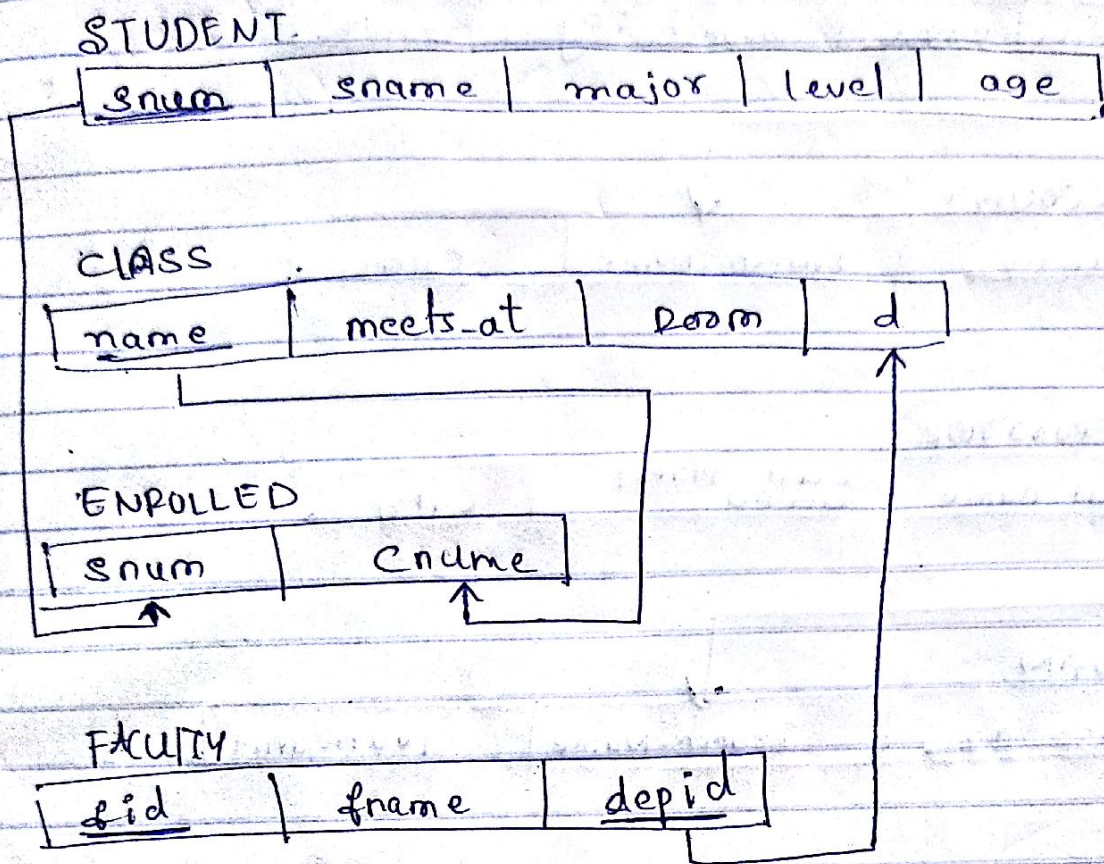 STUDENT
snum sname major level age
CLASS
name meets_at Room d
ENROLLED
snum Cnume
FACULTY
fid fname depid